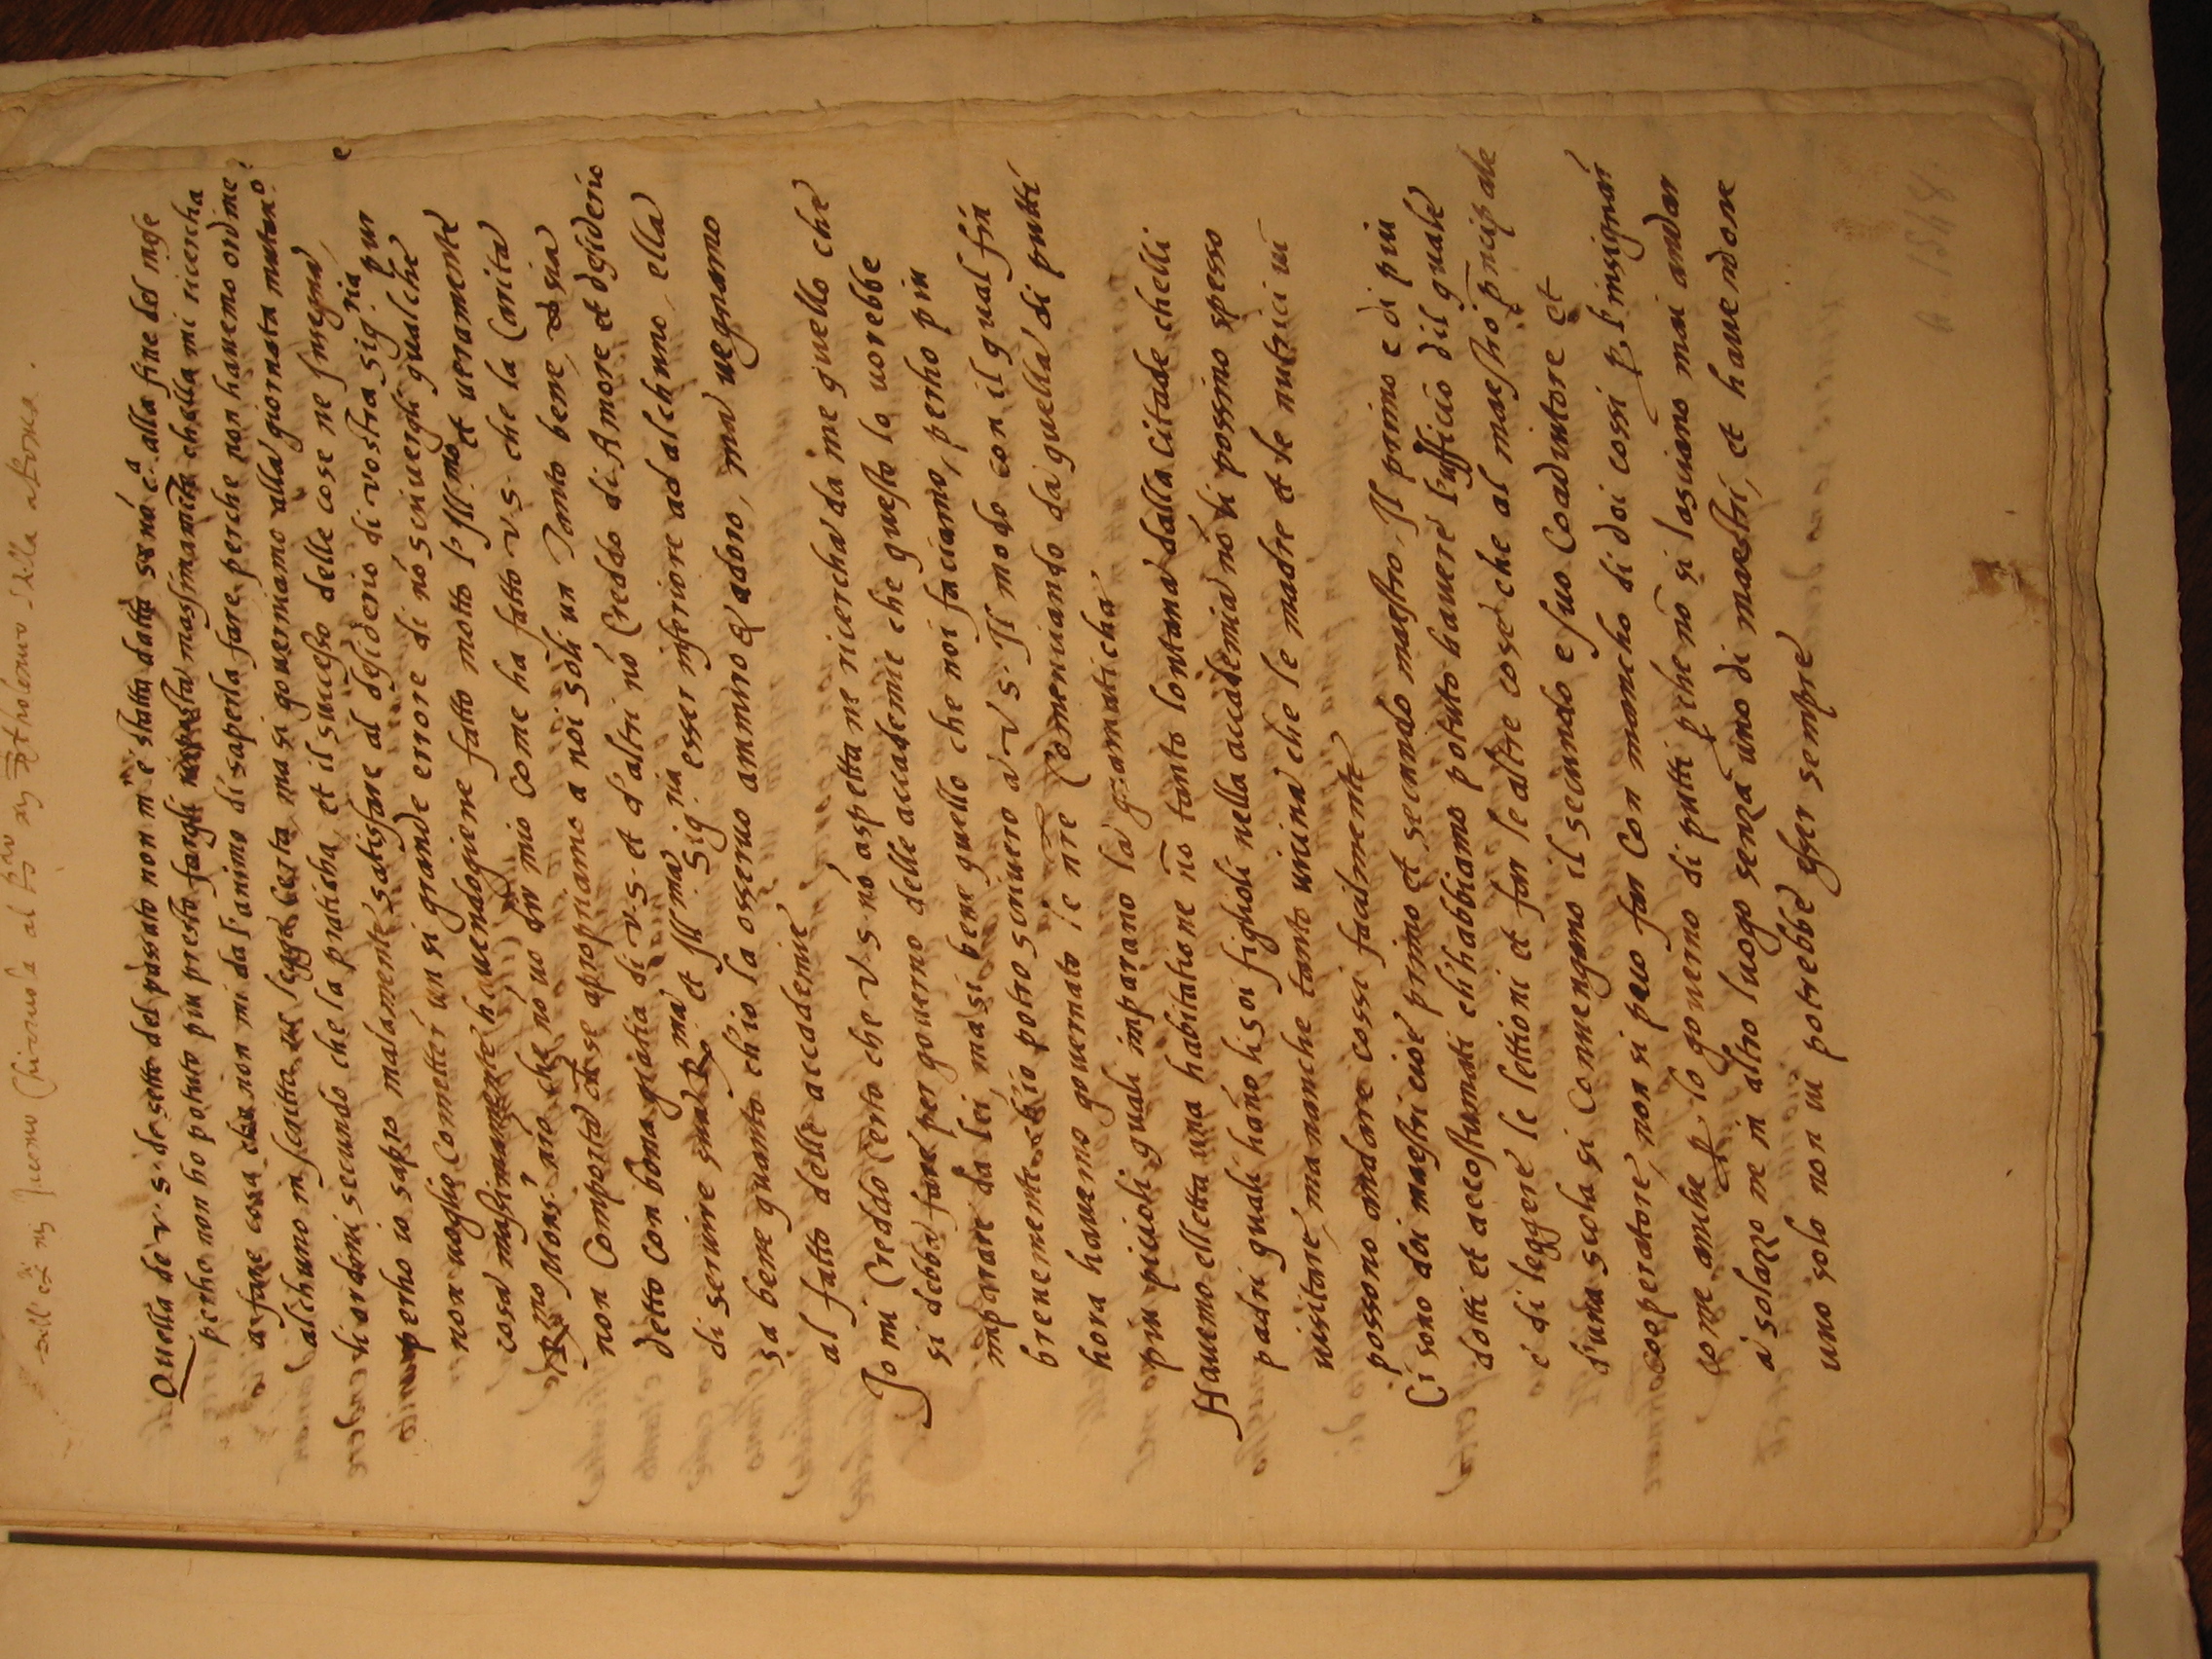 dell ex.te
Quella de v. s. de sette del passato non m'è statta datta se nō c.a alla fine del mese
perho non ho potuto piu presto fargli risposta massimamēte chella mi ricercha
a fare cosa che non mi da l'animo di saperla fare, perche non havemo ordine
alchuno in scritto ne legge certa ma si governiamo alla giornata mutando
li ordini secundo che la praticha, et il successo delle cose ne insegna,
perho io sapro malamente satisfare al desiderio di vostra sig.ria pur
non voglio cometter un si grande errore di nō scrivergli qualche
cosa massimamente havendogiene fatto motto l'Ill.mo et veramente
R.mo Mons.r nīo che no uo dir mio come ha fatto v s. che la carita
non comporta che se apropriamo a noi soli un tanto bene, sia
detto con bona gratia di v. s. et d'altri nō credo di Amore et desiderio
di servire sua R.ma et Ill.ma Sig.ria esser inferiore ad alchuno, ella
sa bene quanto ch'io la osservo ammiro & adoro, ma vegnamo
al fatto delle accademie
Jo mi creddo certo che v. s. nō aspetta ne ricercha da me quello che
si debba fare per governo delle accademie che questo lo vorebbe
imparare da lei, ma si bene quello che noi faciamo, perho piu
brevemente ch'io potro scrivero a v s. Il modo con il qual fin
hora havemo governato le nre comenciando da quella di putti
piu picioli quali imparano la gramaticha
Havemo elletta una habitatione nō tanto lontana dalla citade chelli
padri quali hāno li soi figlioli nella accademia nō li possino spesso
visitare, ma nanche tanto vicina che le madre et le nutrici ui
possono andare cossi facilmente
Ci sono doi maestri cioe primo et secundo maestro, Il primo e di piu
dotti et accostumati ch'habbiamo potuto havere l'ufficio dil quale
è di leggere le lettioni et far le altre cose che al maestro pncipale
d'una scola si convengano il secundo e suo coadiutore et
cooperatore, non si puo far con mancho di doi cossi p. l'insignar
come anche p. lo governo di putti pche nō si lasciano mai andar
a solazzo ne in altro luogo senza uno di maestri, et havendone
uno solo non ui potrebbe esser sempre